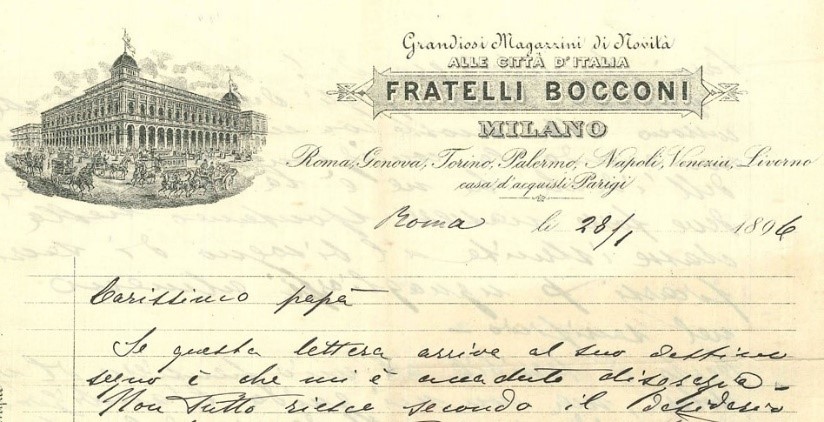 Grandiosi Magazzini di Novità
ALLE CITTÀ D'ITALIA
FRATELLI BOCCONI
MILANO
Roma, Genova, Torino, Palermo, Napoli, Venezia, Livorno
casa d'acquisti Parigi
Roma li 28/1 1896
Carissimo papà
Se questa lettera arriva al suo destino
segno è che mi è accaduta disgrazia -
Non tutto riesce secondo il desiderio